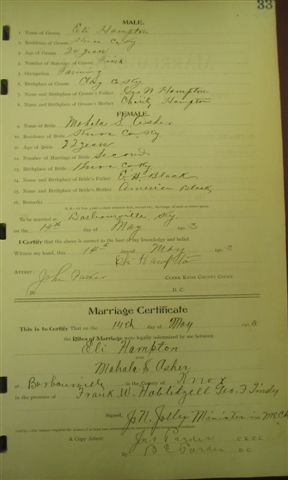 33
MALE.
1. Name of Groom Eli Hampton
2. Residence of Groom Knox Co Ky
3. Age of Groom 20 years
4. Number of Marriage of Groom First
5. Occupation Farming
6. Birthplace of Groom Clay Co Ky
7. Name and Birthplace of Groom's Father Geo W Hampton
8. Name and Birthplace of Groom's Mother Charity Hampton
FEMALE.
9. Name of Bride Mahala S. Asher
10. Residence of Bride Knox Co Ky
11. Age of Bride 22 years
12. Number of Marriage of Bride Second
13. Birthplace of Bride Knox Co Ky
14. Name and Birthplace of Bride's Father E. H. Black
15. Name and Birthplace of Bride's Mother America Black
16. Remarks
To be married at Barbourville, Ky
on the 14th day of May
I Certify that the above is correct to the best of my knowledge and belief.
Witness my hand, this 14th day of May
Eli Hampton
Attest:
CLERK KNOX COUNTY COURT
D. C.
Marriage Certificate
This is to Certify That on the 14th day of May
the Rites of Marriage were legally solemnized by me between
Eli Hampton
and
Mahala S Asher
at Barbourville in the County of Knox
in the presence of Frank W. Hoblitzell Geo. F. Tinsley
Signed, J. N. Jolly Minister in M E Ch
A Copy Attest: